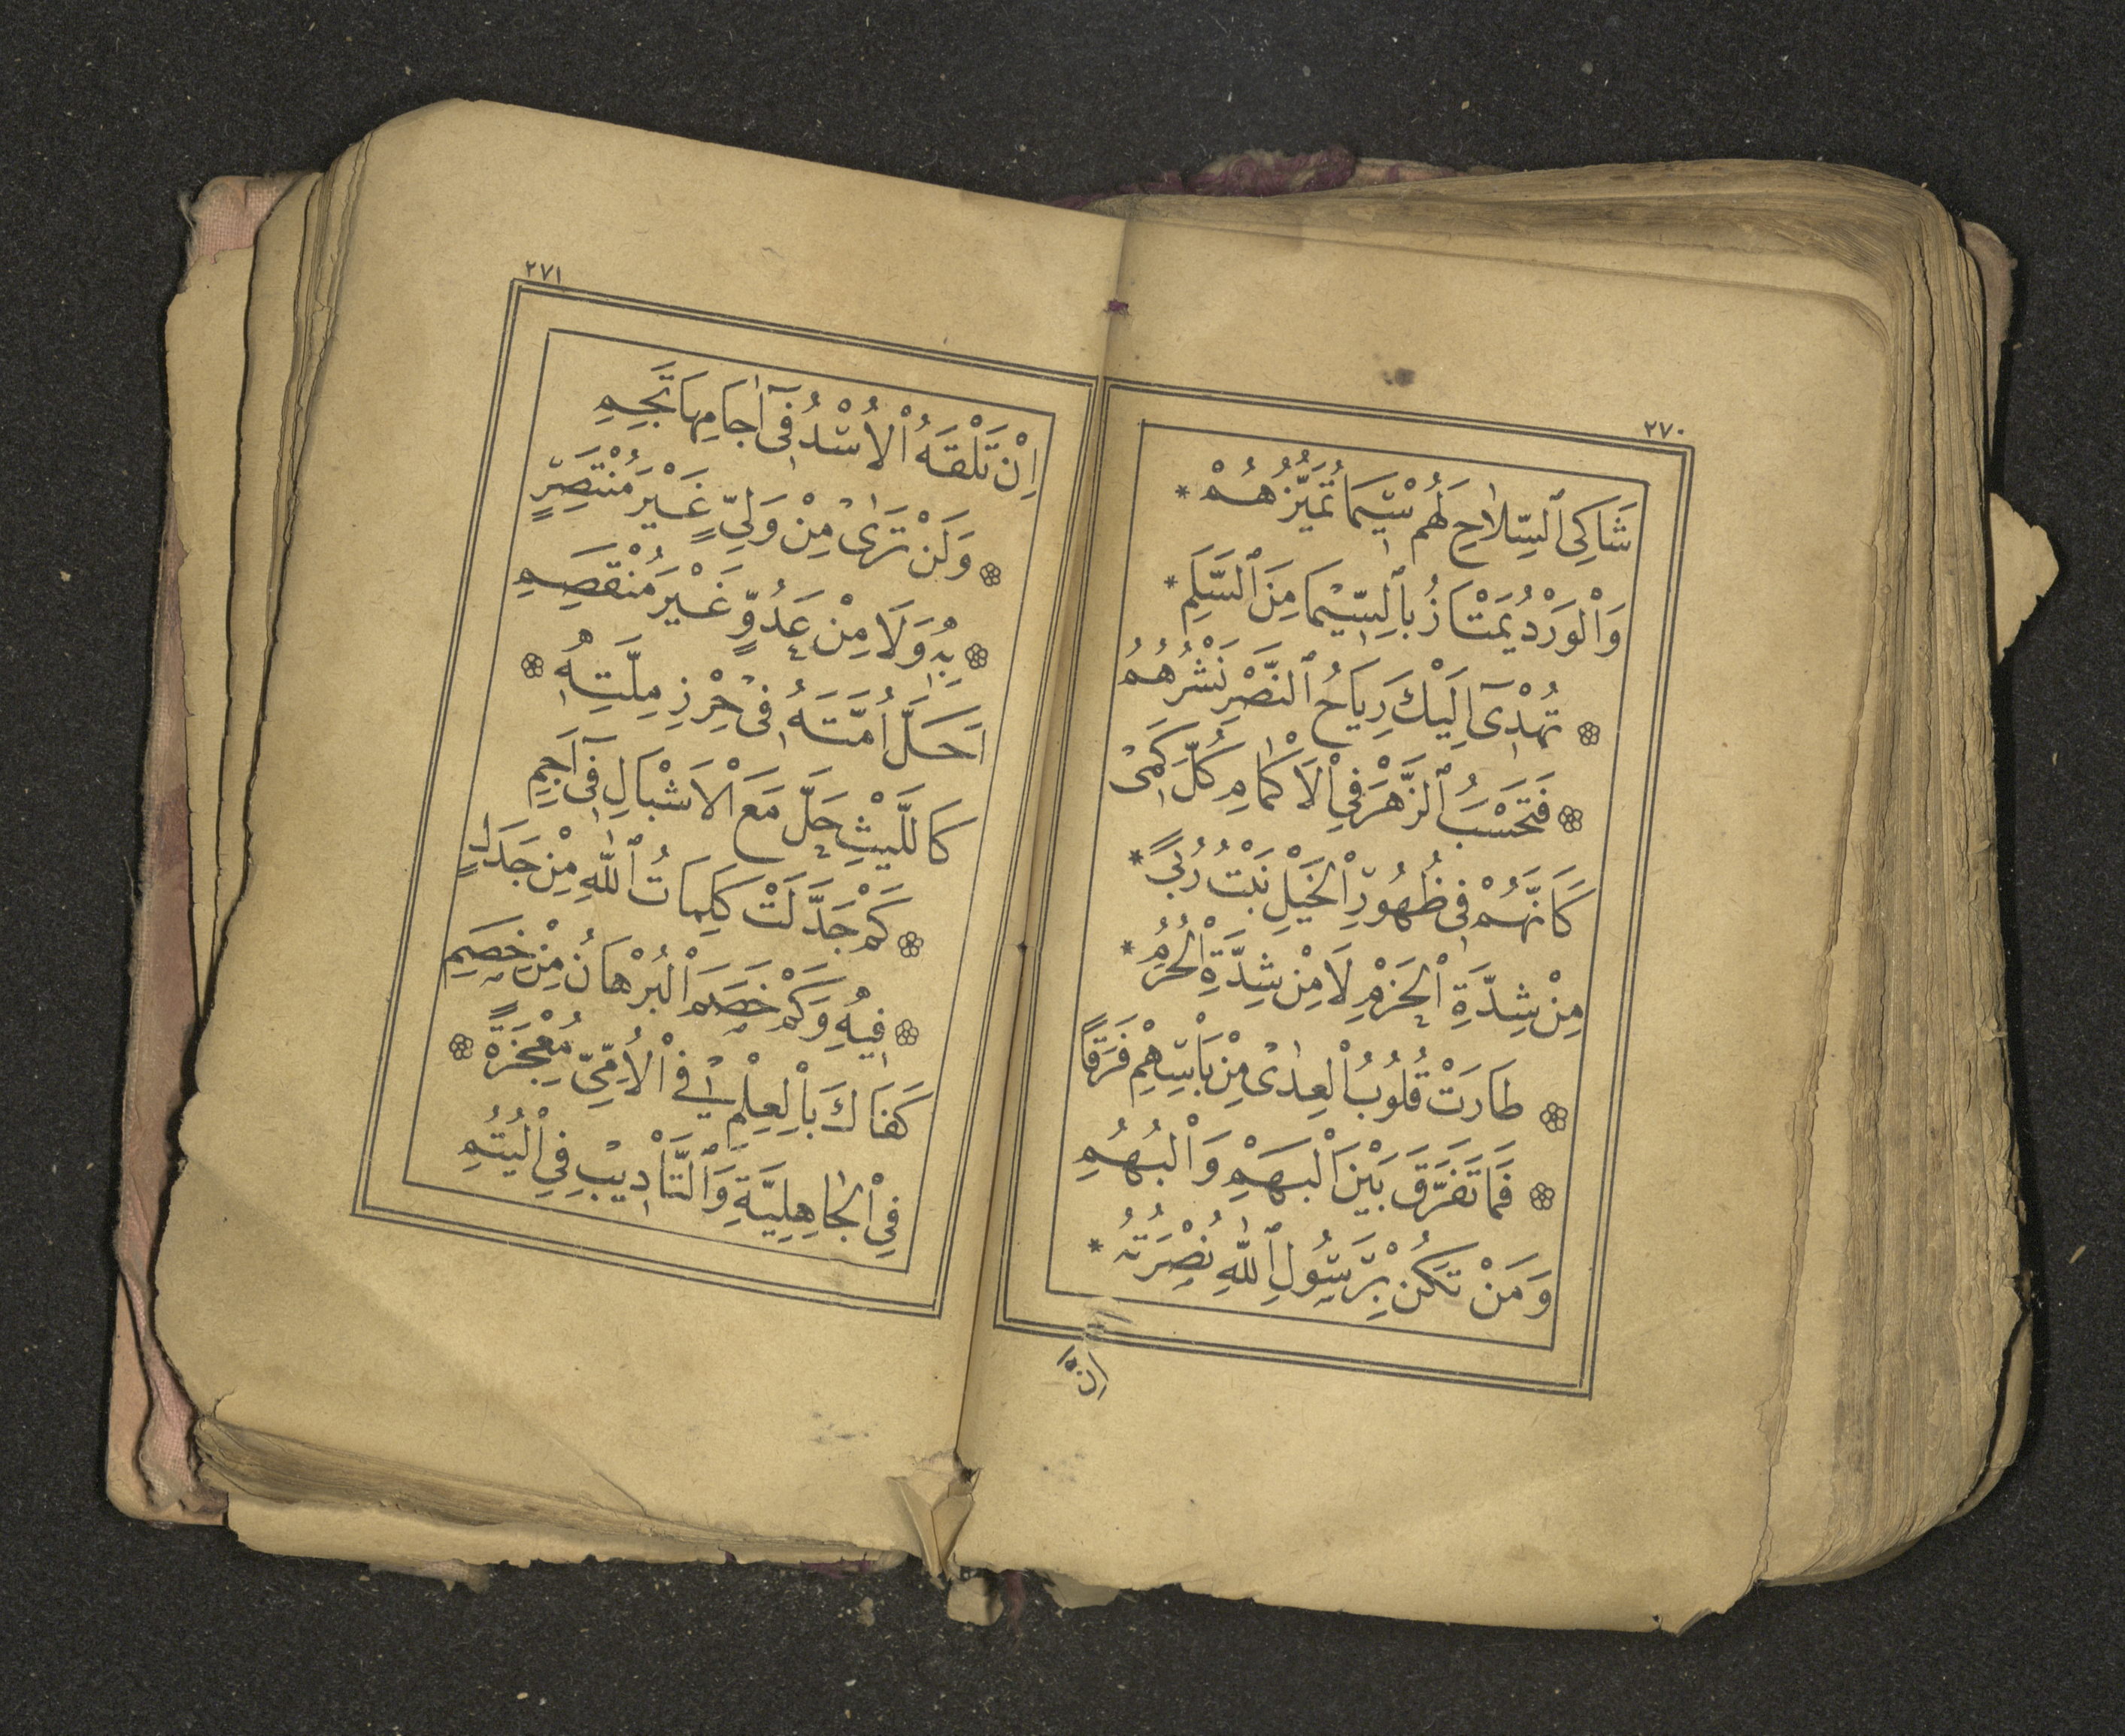 ٢٧٠
شَاكِى ٱلسِّلَاحِ لَهُمْ سِيْمَا تُمَيِّزُهُمْ *
وَالْوَرْدُ يَمْتَازُ بِٱلسِّيْمَا مِنَ ٱلسَّلَمِ *
تُهْدِىٓ اِلَيْكَ رِيَاحُ ٱلنَّصْرِ نَشْرَهُمُ
فَتَحْسَبُ ٱلزَّهْرَ فِى الْاَكْمَامِ كُلَّ كَمِىْ
كَاَنَّهُمْ فِى ظُهُورِ الْخَيْلِ نَبْتُ رُبًى *
مِنْ شِدَّةِ الْحَزْمِ لَا مِنْ شِدَّةِ الْحُزُمِ *
طَارَتْ قُلُوبُ الْعِدٰى مِنْ بَأْسِهِمْ فَرَقًا
فَمَا تَفَرَّقَ بَيْنَ الْبَهْمِ وَالْبُهُمِ
وَمَنْ تَكُنْ بِرَسُولِ ٱللّٰهِ نُصْرَتُهُ *
اِنْ
٢٧١
اِنْ تَلْقَهُ الْاُسْدُ فِىٓ اٰجَامِهَا تَجِمِ
وَلَنْ تَرٰى مِنْ وَلِىٍّ غَيْرَ مُنْتَصِرٍ
بِهٖ وَلَا مِنْ عَدُوٍّ غَيْرَ مُنْقَصِمِ
اَحَلَّ اُمَّتَهُ فِى حِرْزِ مِلَّتِهٖ
كَاللَّيْثِ حَلَّ مَعَ الْاَشْبَالِ فِىٓ اَجَمِ
كَمْ جَدَّلَتْ كَلِمَاتُ ٱللّٰهِ مِنْ جَدَلٍ
فِيهِ وَكَمْ خَصَمَ الْبُرْهَانُ مِنْ خَصِمِ
كَفَاكَ بِالْعِلْمِ فِى الْاُمِّىِّ مُعْجِزَةً
فِى الْجَاهِلِيَّةِ وَٱلتَّأْدِيْبِ فِى الْيُتُمِ